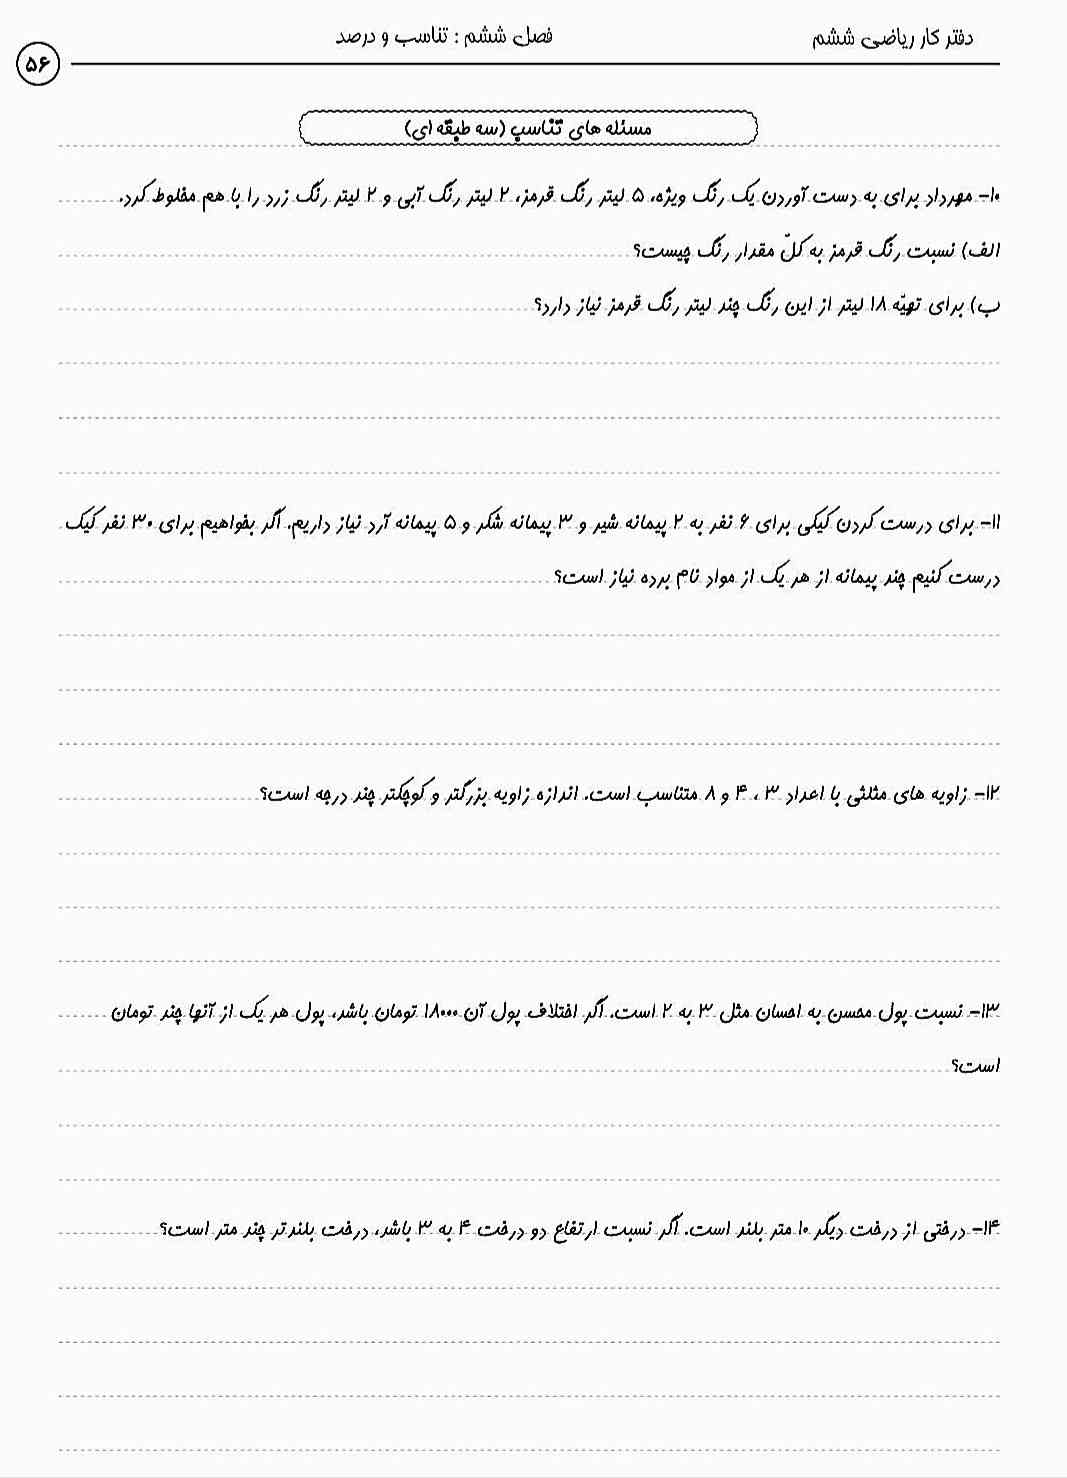 دفتر کار ریاضی ششم
فصل ششم : تناسب و درصد
۵۶
مسئله های تناسب (سه طبقه ای)
۱۰- مهرداد برای به دست آوردن یک رنگ ویژه، ۵ لیتر رنگ قرمز، ۲ لیتر رنگ آبی و ۲ لیتر رنگ زرد را با هم مخلوط کرد.
الف) نسبت رنگ قرمز به کلّ مقدار رنگ چیست؟
ب) برای تهیّه ۱۸ لیتر از این رنگ چند لیتر رنگ قرمز نیاز دارد؟
۱۱- برای درست کردن کیکی برای ۶ نفر به ۲ پیمانه شیر و ۳ پیمانه شکر و ۵ پیمانه آرد نیاز داریم. اگر بخواهیم برای ۳۰ نفر کیک
درست کنیم چند پیمانه از هر یک از مواد نام برده نیاز است؟
۱۲- زاویه های مثلثی با اعداد ۳ ، ۴ و ۸ متناسب است. اندازه زاویه بزرگتر و کوچکتر چند درجه است؟
۱۳- نسبت پول محسن به احسان مثل ۳ به ۲ است. اگر اختلاف پول آن ۱۸۰۰۰ تومان باشد، پول هر یک از آنها چند تومان
است؟
۱۴- درختی از درخت دیگر ۱۰ متر بلند است. اگر نسبت ارتفاع دو درخت ۴ به ۳ باشد، درخت بلندتر چند متر است؟